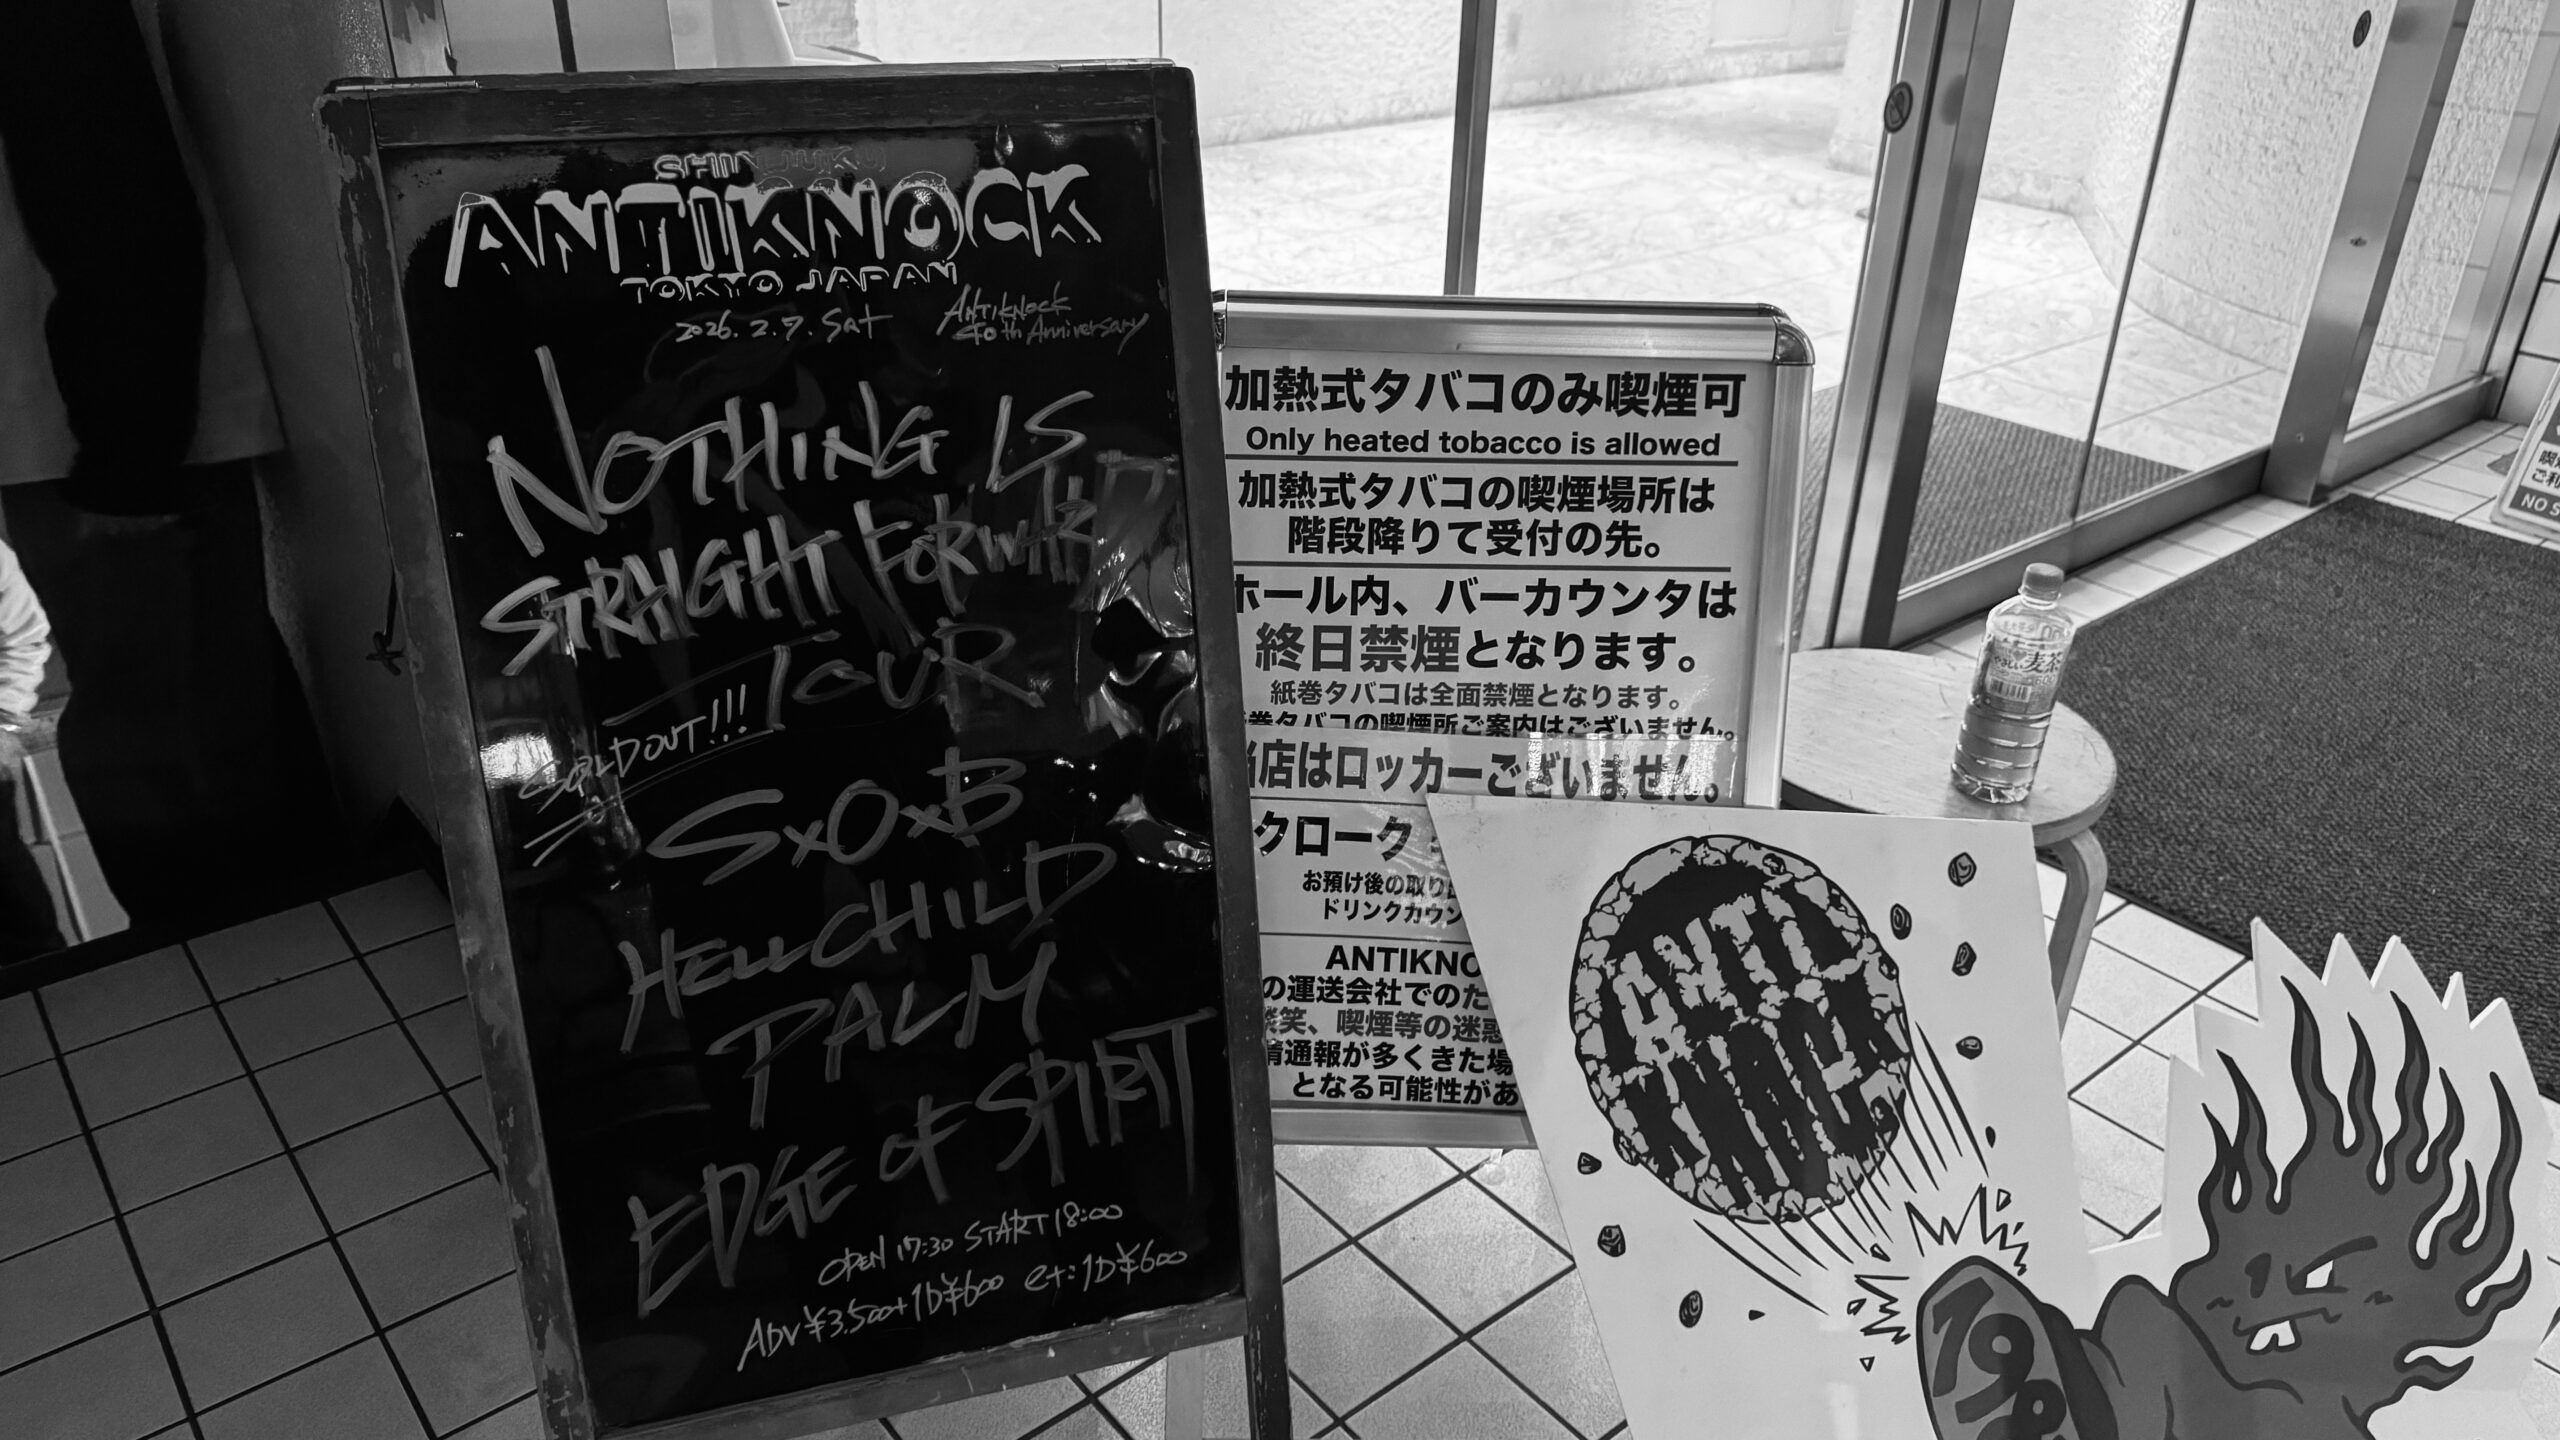 SHINJUKU
ANTIKNOCK
TOKYO JAPAN
2026. 2. 7. Sat
ANTIKNOCK
40th Anniversary
NOTHING IS
STRAIGHT FORWARD
TOUR
SOLD OUT!!!
S×O×B
HELLCHILD
PALM
EDGE OF SPIRIT
OPEN 17:30 START 18:00
ADV ¥3.500+1D¥600 et: 1D¥600
加熱式タバコのみ喫煙可
Only heated tobacco is allowed
加熱式タバコの喫煙場所は
階段降りて受付の先。
ホール内、バーカウンタは
終日禁煙となります。
紙巻タバコは全面禁煙となります。
巻タバコの喫煙所ご案内はございません。
当店はロッカーございません。
クローク
お預け後の取り
ドリンクカウン
ANTIKNO
の運送会社でのた
笑、喫煙等の迷惑
通報が多くきた場
となる可能性があ
ANTI
KNOCK
198
麦茶
NO S